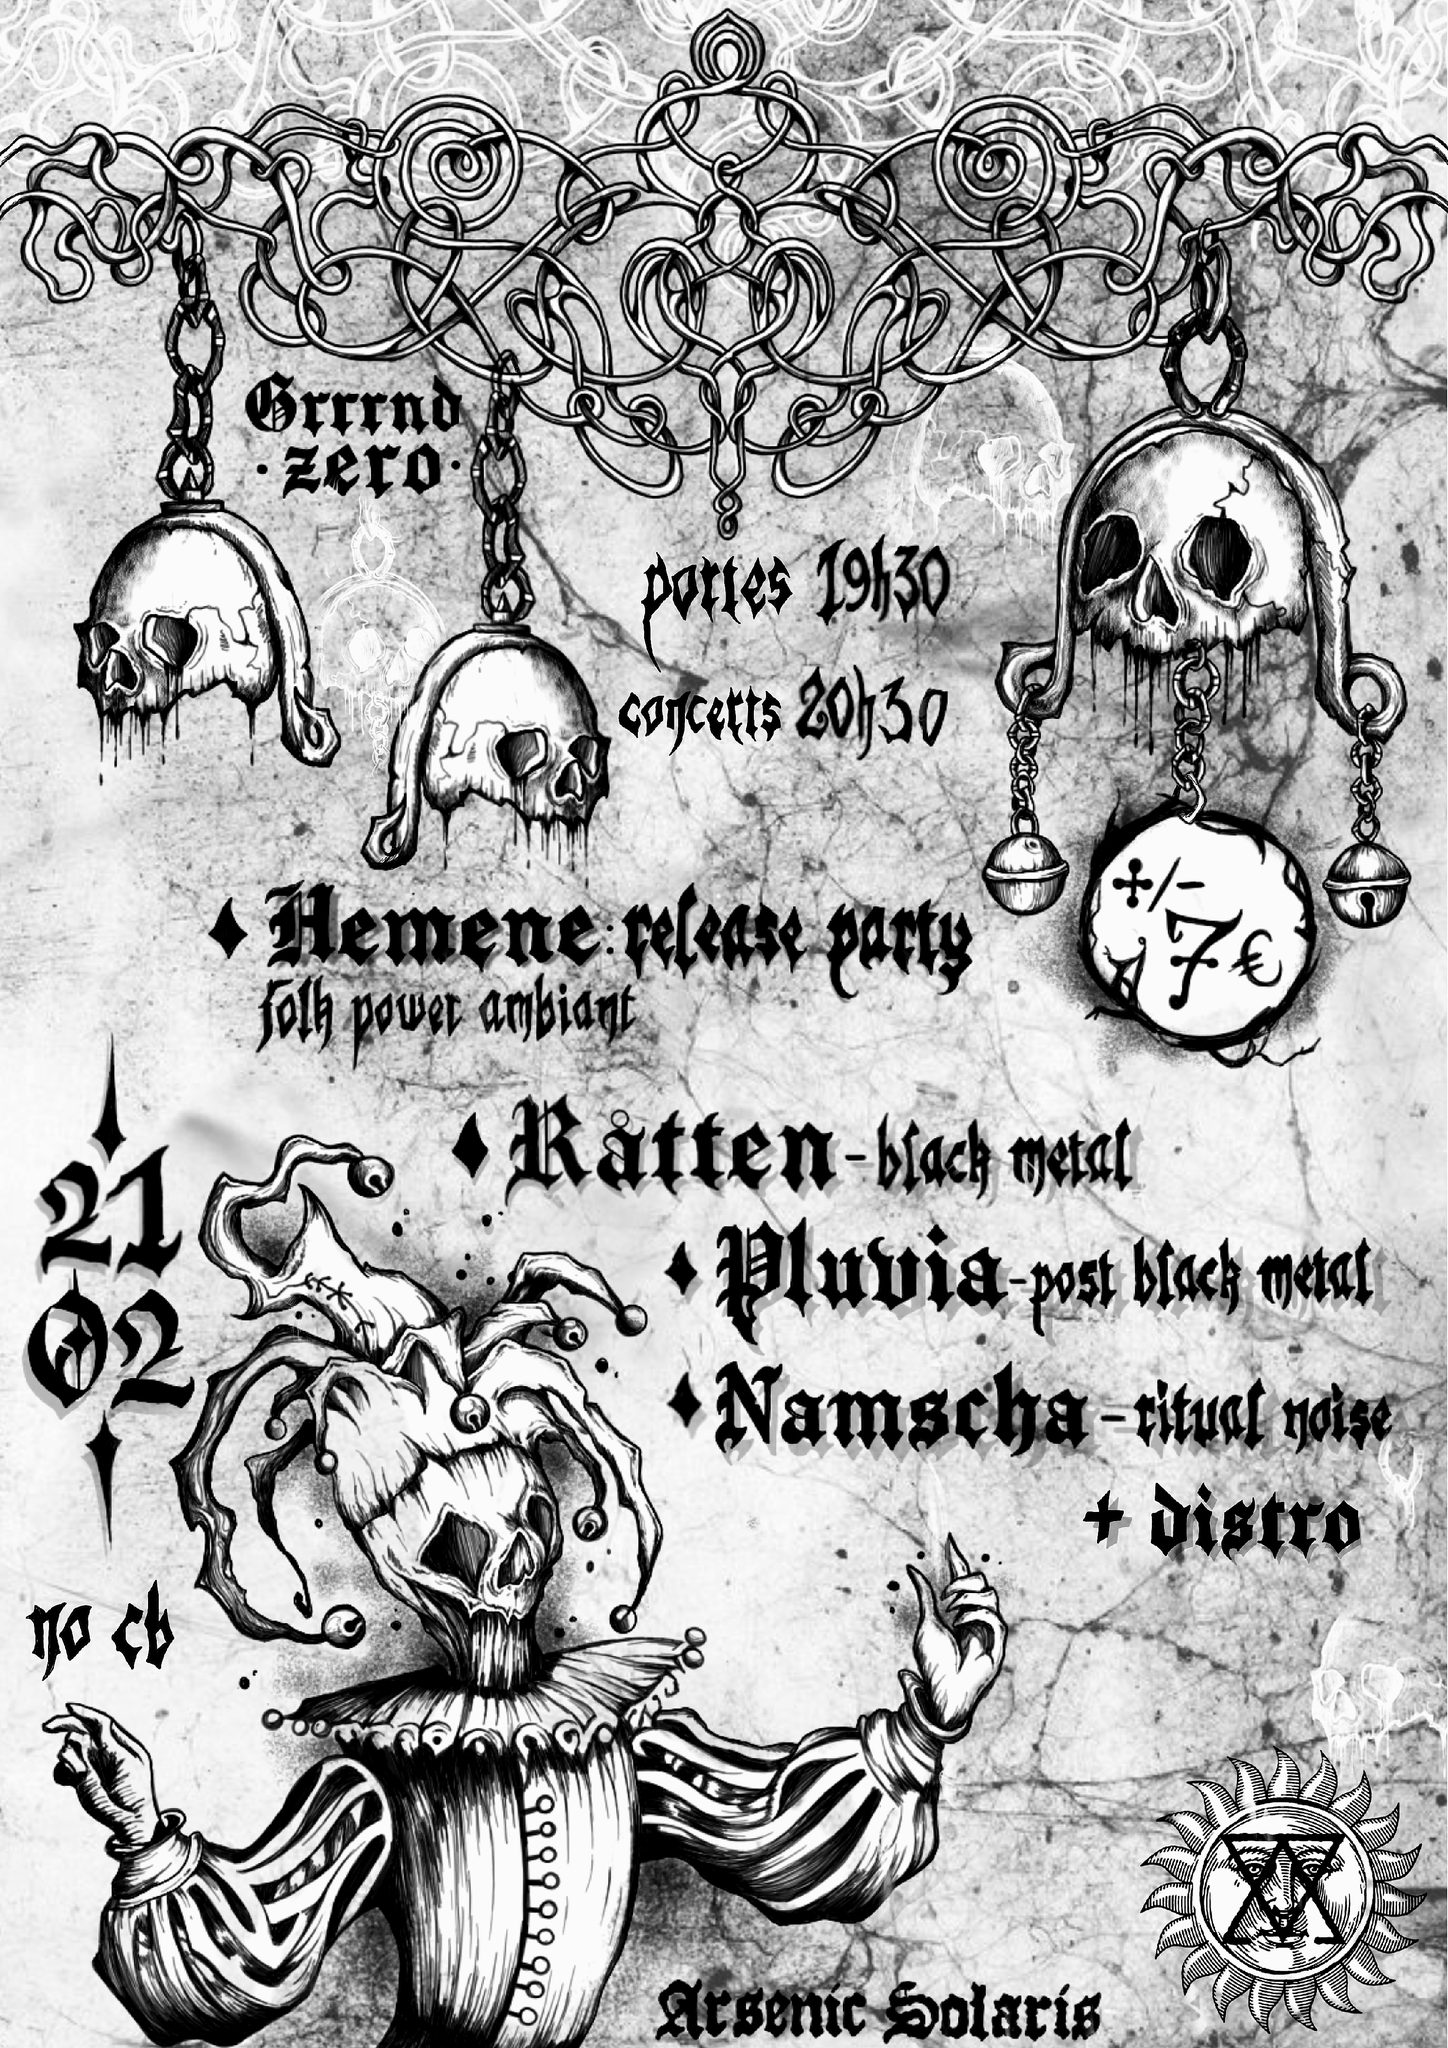 Grrrnd
· zero ·
portes 19h30
concerts 20h30
+/-
7€
Hemene: release party
folk power ambiant
Råtten - black metal
21
02
Pluvia - post black metal
Namscha - ritual noise
+ distro
no cb
Arsenic Solaris